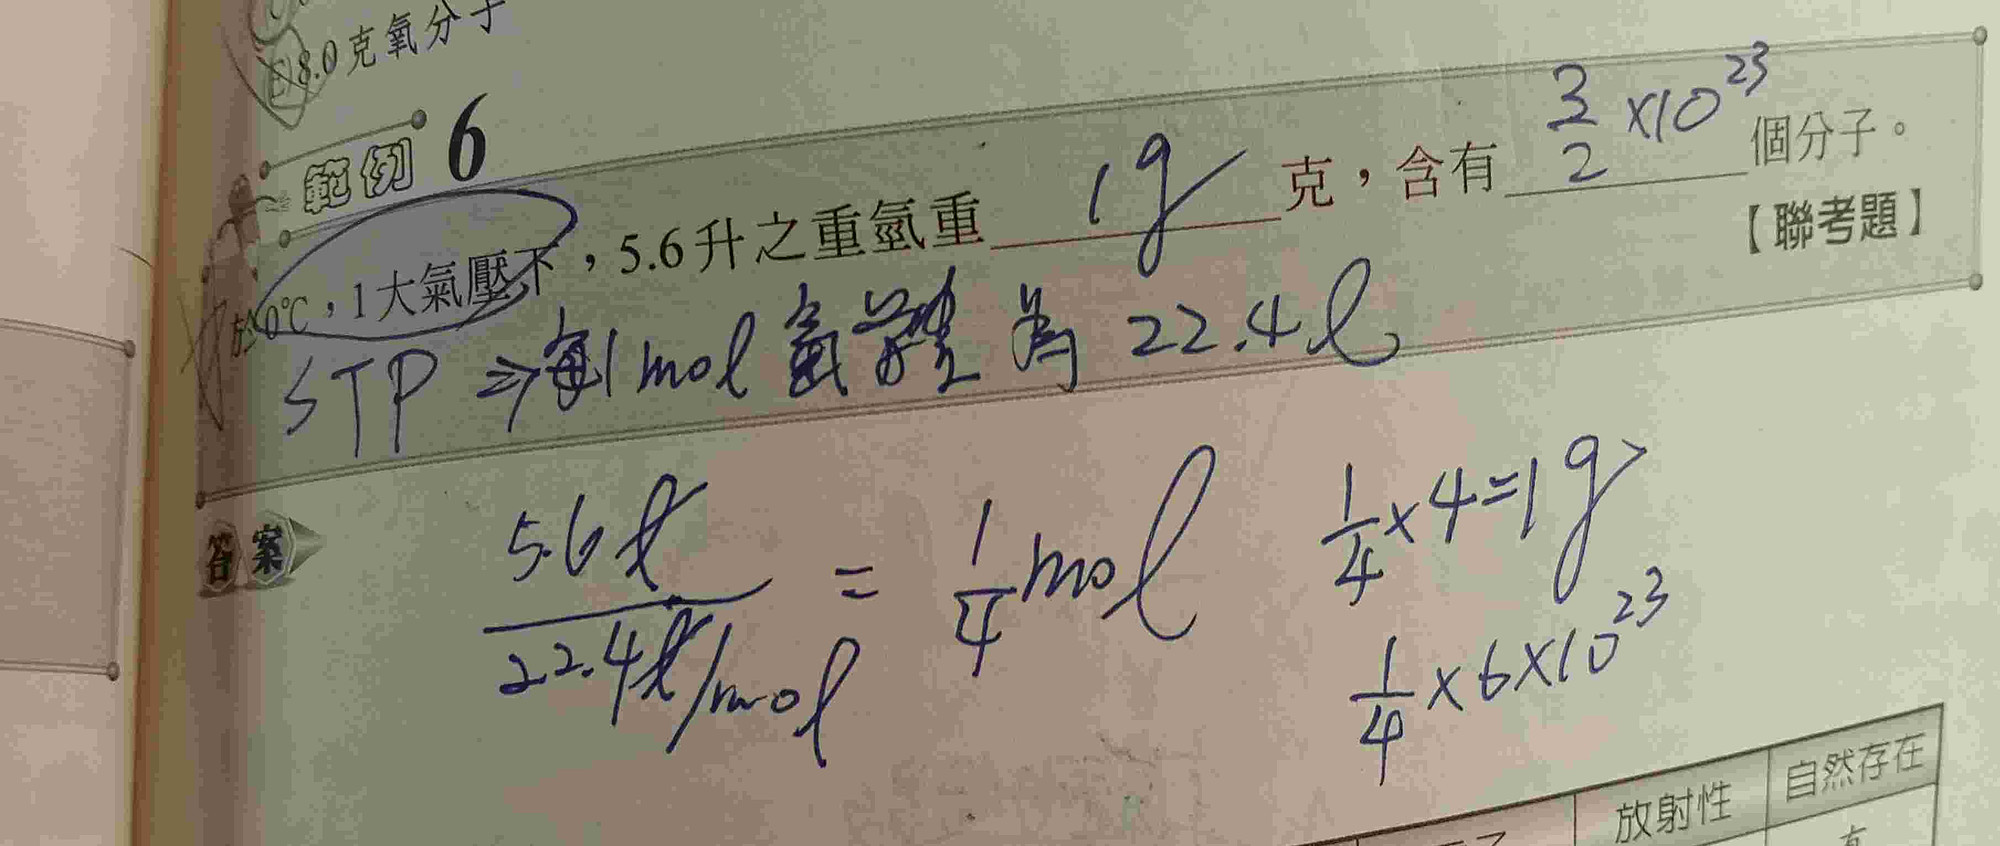 (E)8.0克氧分子
範例 6
於0℃，1大氣壓下，5.6升之重氫重 1g 克，含有 3/2 ×10²³ 個分子。
【聯考題】
STP ⇒ 每1mol 氣體 為 22.4ℓ
答案
5.6ℓ / 22.4ℓ/mol = 1/4 mol
1/4 × 4 = 1g
1/4 × 6 × 10²³
放射性 自然存在
有